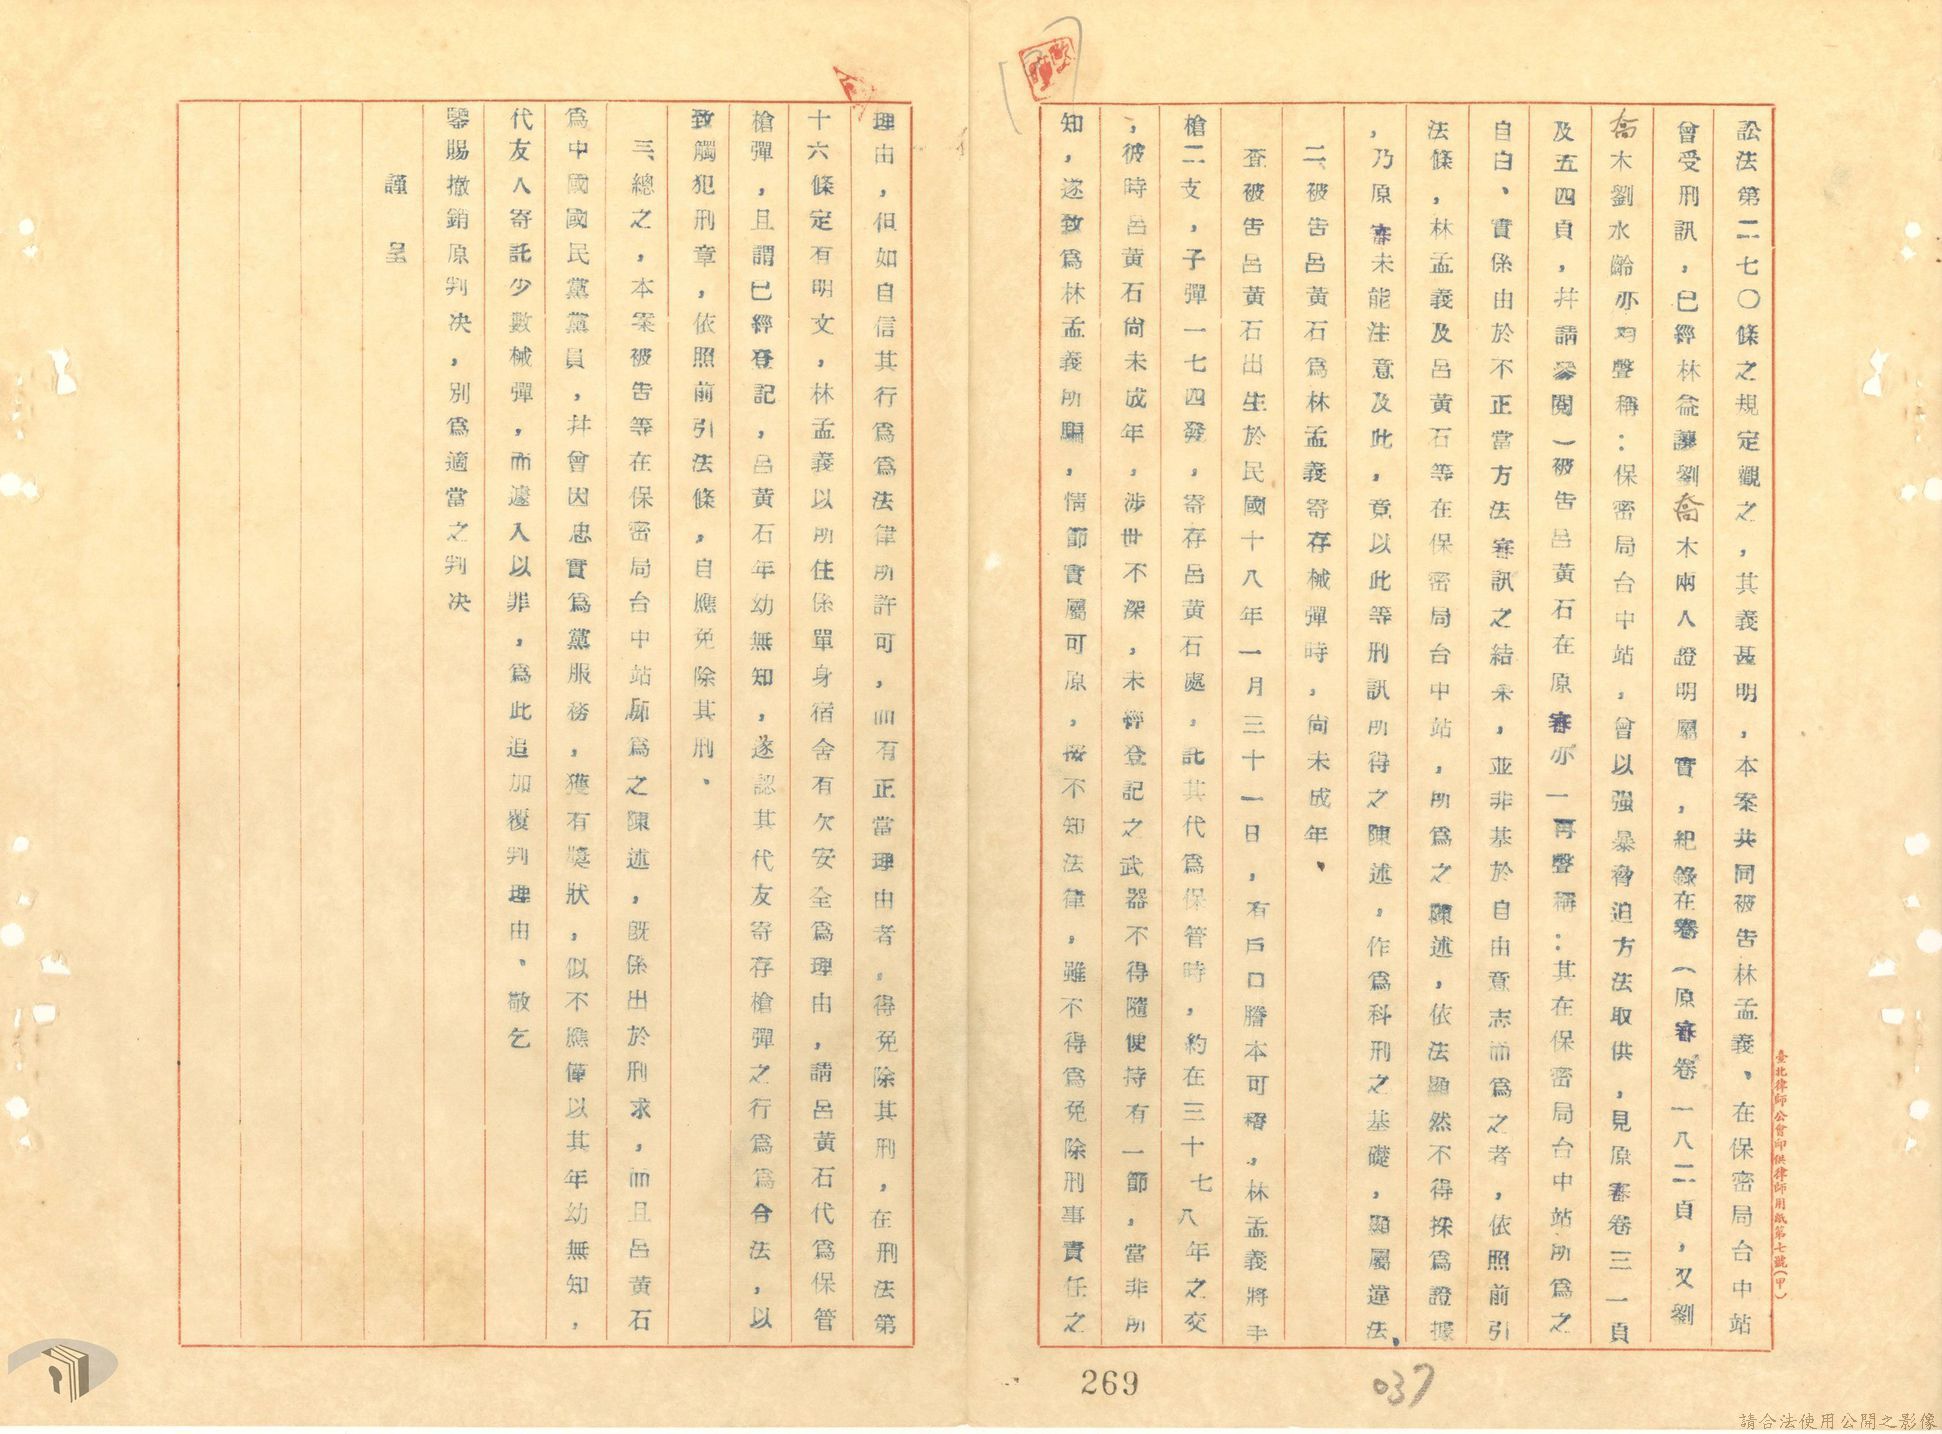 訟法第二七〇條之規定觀之，其義甚明，本案共同被告林孟義、在保密局台中站
曾受刑訊，已經林益謙劉喬木兩人證明屬實，紀錄在卷（原審卷一八二頁，又劉
喬木劉水齡亦均聲稱：保密局台中站，曾以強暴脅迫方法取供，見原審卷三一頁
及五四頁，幷請參閱）被告呂黃石在原審亦一再聲稱：其在保密局台中站所為之
自白、實係由於不正當方法審訊之結果，並非基於自由意志而為之者，依照前引
法條，林孟義及呂黃石等在保密局台中站，所為之陳述，依法顯然不得採為證據
，乃原審未能注意及此，竟以此等刑訊所得之陳述，作為科刑之基礎，顯屬違法、
二、被告呂黃石為林孟義寄存械彈時，尙未成年、
查被告呂黃石出生於民國十八年一月三十一日，有戶口謄本可稽，林孟義將手
槍二支，子彈一七四發，寄存呂黃石處，託其代為保管時，約在三十七八年之交
，彼時呂黃石尙未成年，涉世不深，未經登記之武器不得隨便持有一節，當非所
知，遂致為林孟義所騙，情節實屬可原，按不知法律，雖不得為免除刑事責任之
理由，但如自信其行為為法律所許可，而有正當理由者，得免除其刑，在刑法第
十六條定有明文，林孟義以所住係單身宿舍有欠安全為理由，請呂黃石代為保管
槍彈，且謂已經登記，呂黃石年幼無知，遂認其代友寄存槍彈之行為為合法，以
致觸犯刑章，依照前引法條，自應免除其刑、
三、總之，本案被告等在保密局台中站所為之陳述，旣係出於刑求，而且呂黃石
為中國國民黨黨員，幷曾因忠實為黨服務，獲有獎狀，似不應僅以其年幼無知，
代友人寄託少數械彈，而遽入以罪，為此追加覆判理由、敬乞
鑒賜撤銷原判决，別為適當之判决
謹呈
臺北律師公會印供律師用紙第七號（甲）
269
037
請合法使用公開之影像